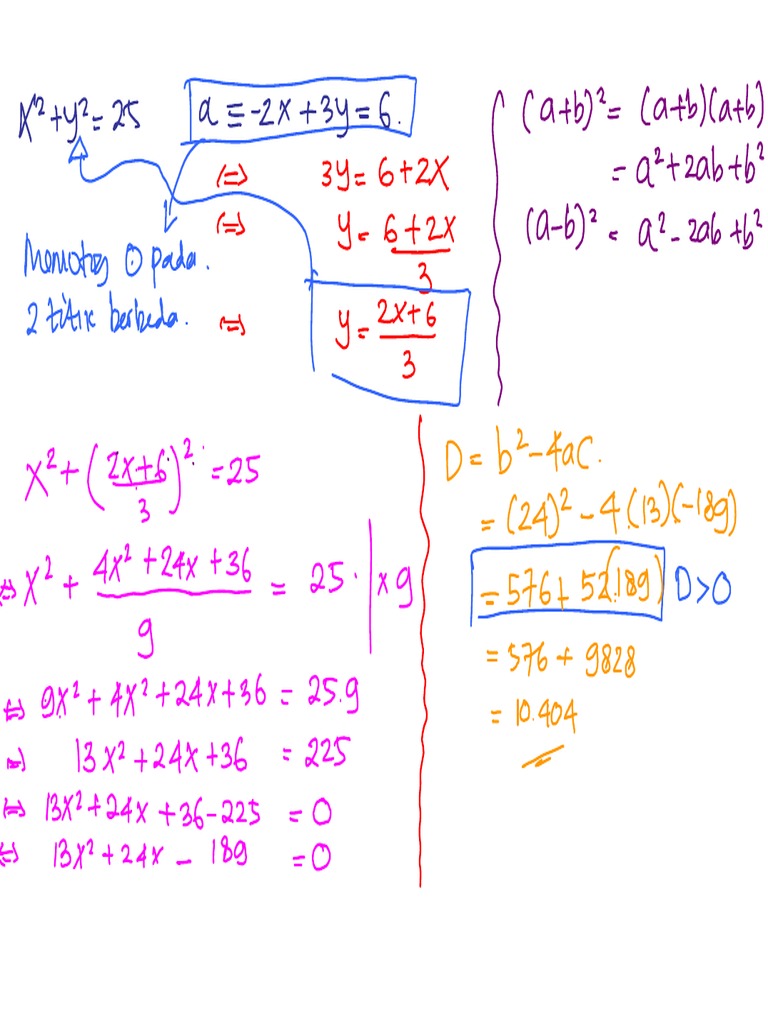 x² + y² = 25
a ≡ -2x + 3y = 6.
⇔ 3y = 6 + 2x
⇔ y = (6 + 2x)/3
⇔ y = (2x + 6)/3
Memotog ⊙ pada.
2 titik berbeda.
(a+b)² = (a+b)(a+b)
= a² + 2ab + b²
(a-b)² = a² - 2ab + b²
x² + ((2x+6)/3)² = 25
⇔ x² + (4x² + 24x + 36)/9 = 25 · | × 9
⇔ 9x² + 4x² + 24x + 36 = 25.9
⇔ 13x² + 24x + 36 = 225
⇔ 13x² + 24x + 36 - 225 = 0
⇔ 13x² + 24x - 189 = 0
D = b² - 4ac.
= (24)² - 4.(13)(-189)
= 576 + 52(189) D > 0
= 576 + 9828
= 10.404